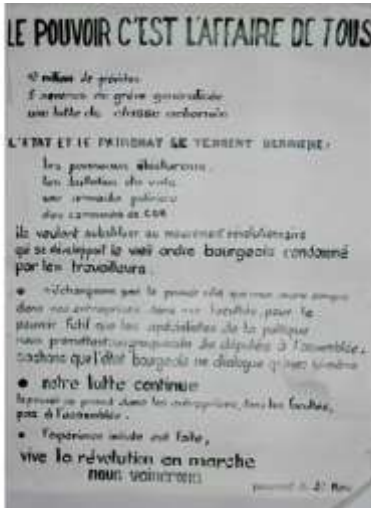 LE POUVOIR C'EST L'AFFAIRE DE TOUS
10 million de grévistes
3 semaines de grève generalisée
une lutte de classe
L'ETAT ET LE PATRONAT SE TERRENT DERRIERE:
les panneaux électoraux
les bulletins de vote
une armada policière
des camions de CDR
ils veulent substituer au mouvement révolutionnaire
qui se développait le vieil ordre bourgeois condamné
par les travailleurs.
• n'échangeons pas le pouvoir réel que nous avons conquis
dans nos entreprises dans nos facultés, pour le
pouvoir futil que les spécialistes de la politique
nous promettent de députés à l'assemblée,
sachons que l'état bourgeois ne dialogue qu'avec
• notre lutte continue
le pouvoir se prend dans les entreprises, dans les facultés,
pas à l'assemblée.
• l'expérience inédite est faite,
vive la révolution en marche
nous vaincrons